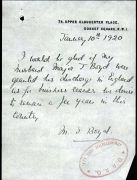 74, UPPER GLOUCESTER PLACE,
DORSET SQUARE, N.W.1.
January 10th 1920
I would be glad if my
husband Major T. Boyd was
granted his discharge in England
as for business reasons he desires
to remain a few years in this
country
M. F. Boyd.